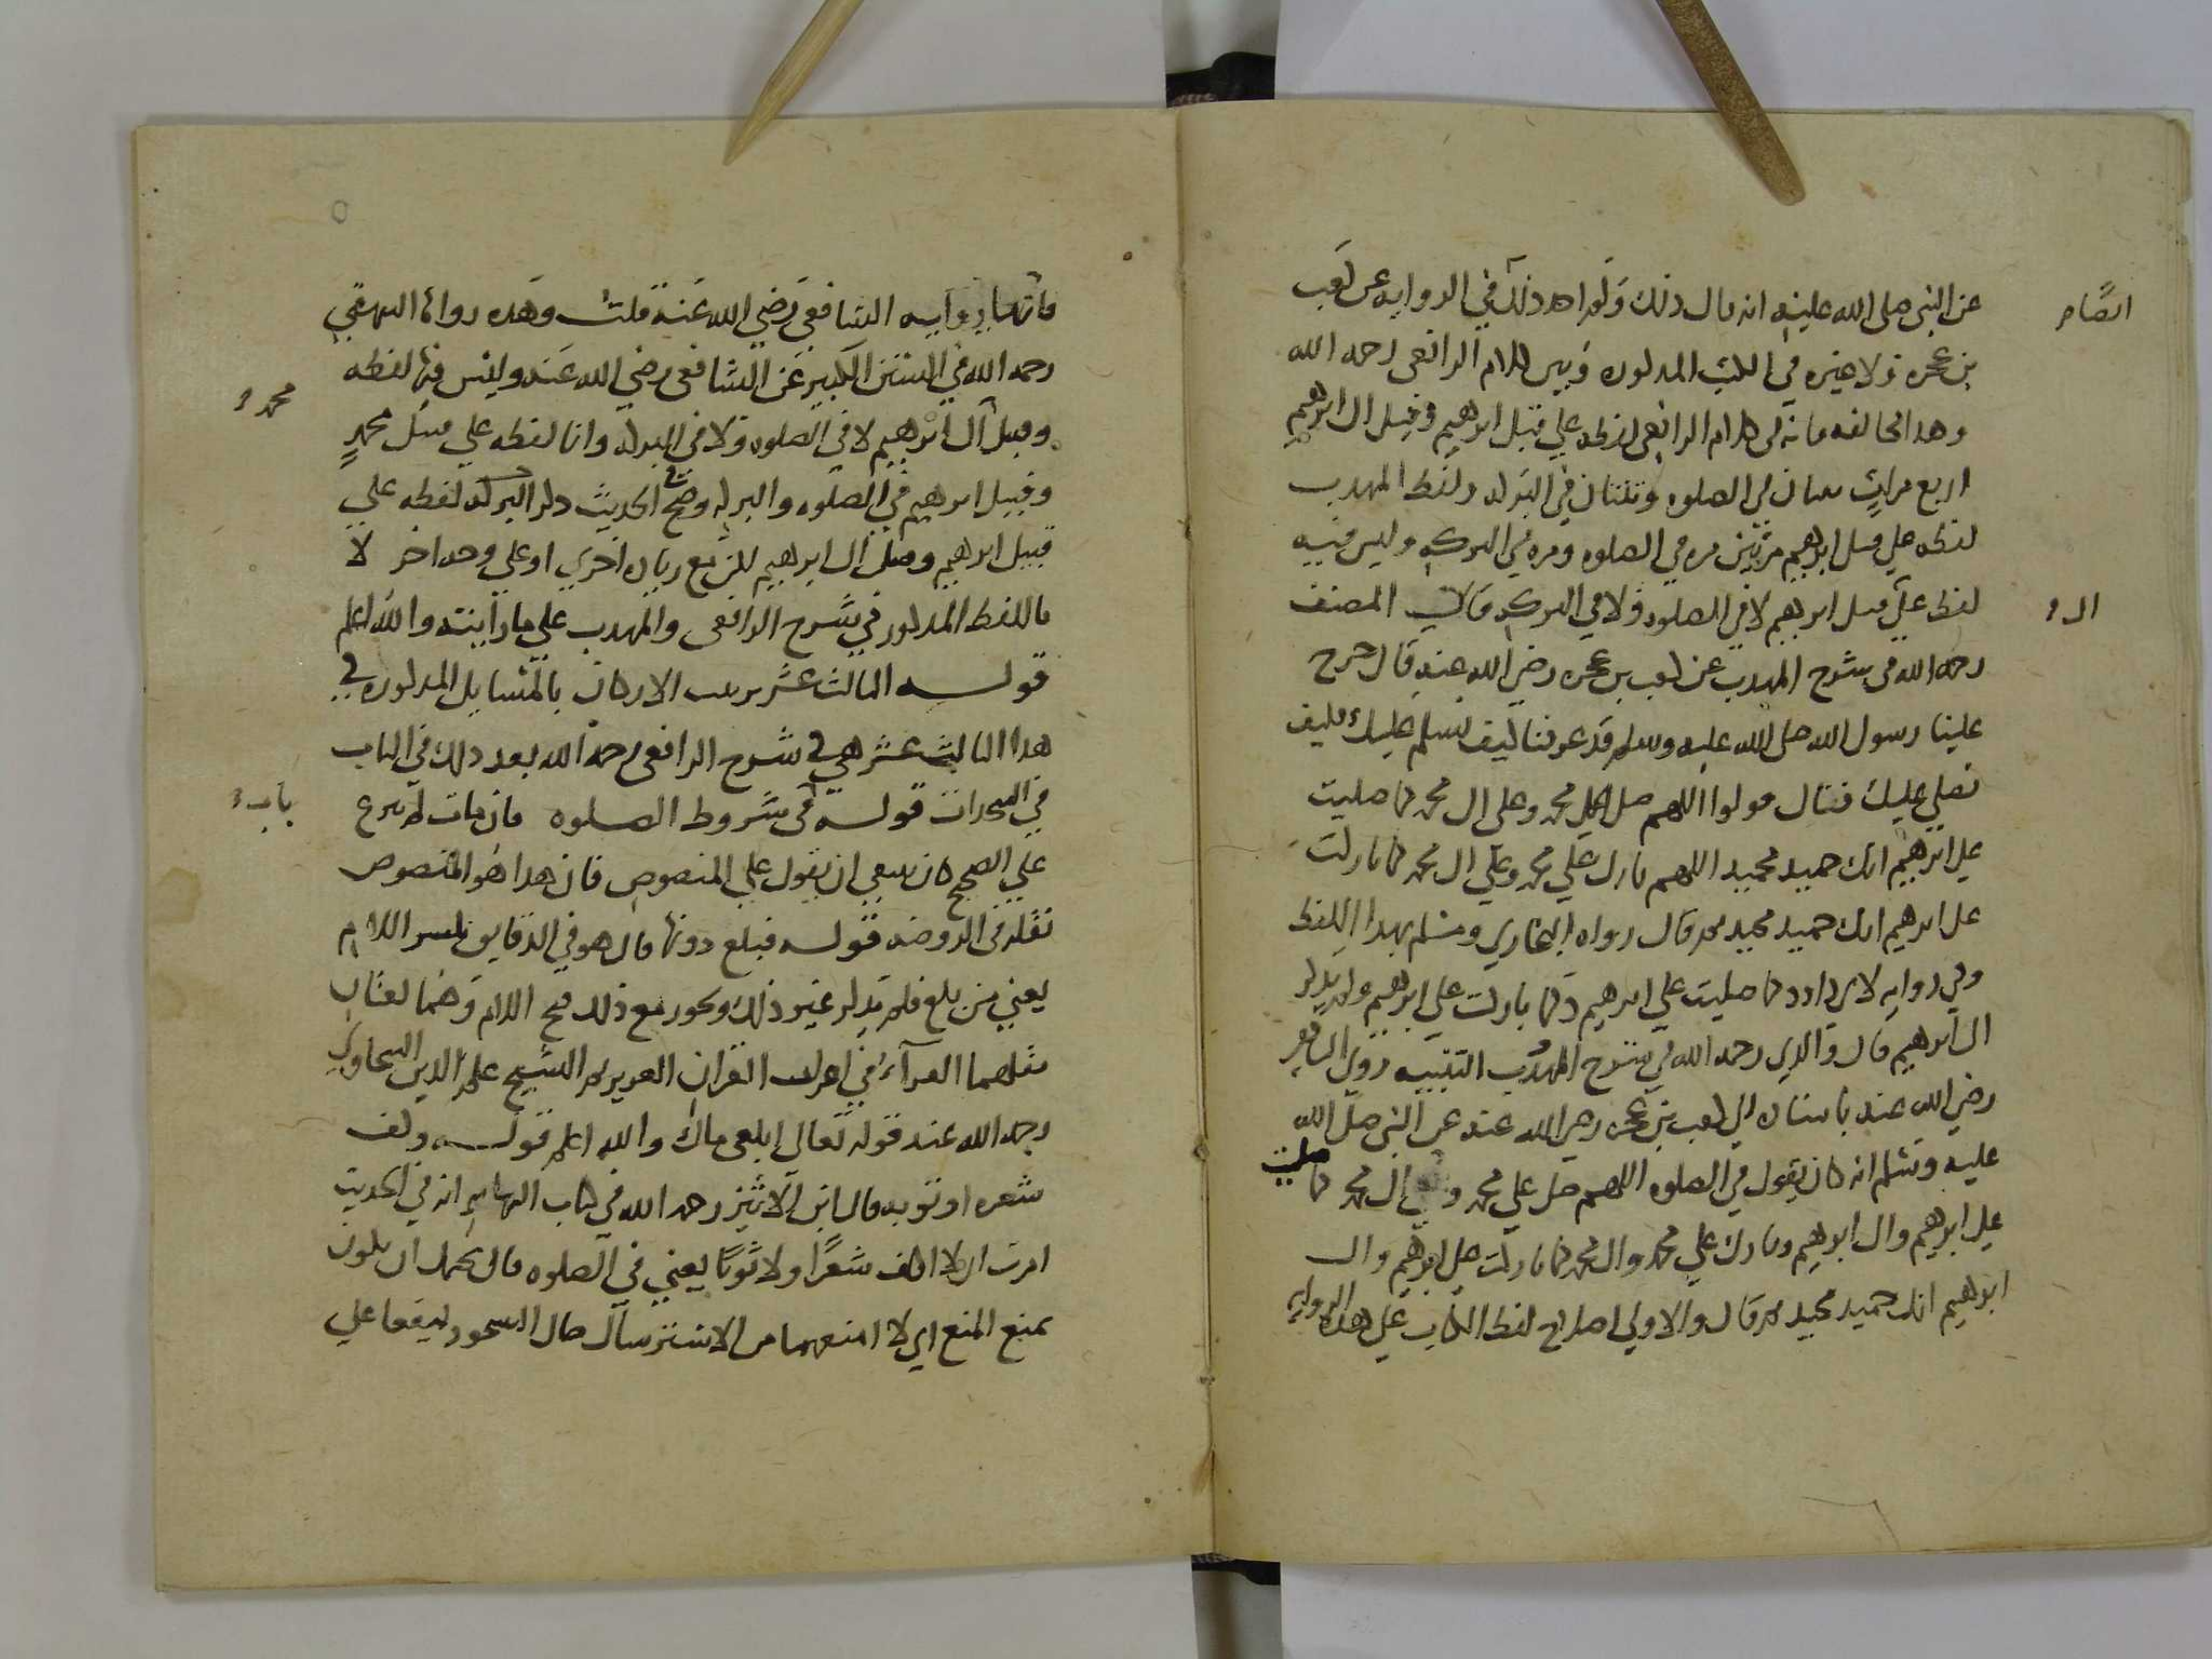 عن النبي صلى الله عليه انه قال ذلك ولم اجد ذلك في الرواية عن كعب
ايضًا
بن عجرة ولا غيره في الكتب المذكورة وبين كلام الرافعي رحمه الله
وهذا مخالفة فانه في كلام الرافعي لفظة علي قبل ابرهيم وقبل ال ابرهيم
اربع مرات ثنتان في الصلوه وثنتان في البركة ولفظ المهذب
لفظة علي قبل ابرهيم مرتين مرة في الصلوه ومرة في البركة وليس فيه
لفظ علي قبل ابرهيم لا في الصلوه ولا في البركة قال المصنف
ال
رحمه الله في شرح المهذب عن كعب بن عجرة رضي الله عنه قال خرج
علينا رسول الله صلى الله عليه وسلم قد عرفنا كيف نسلم عليك فكيف
نصلي عليك فقال قولوا اللهم صل علي محمد وعلى ال محمد كما صليت
علي ابرهيم انك حميد مجيد اللهم بارك علي محمد وعلي ال محمد كما باركت
على ابرهيم انك حميد مجيد ثم قال رواه البخاري ومسلم بهذا اللفظ
وفي رواية لابي داود كما صليت علي ابرهيم وكما باركت علي ابرهيم ولم يذكر
ال ابرهيم قال والذي رحمه الله في شرح المهذب التنبيه روى الشافعي
رضي الله عنه باسناده الي كعب بن عجرة رضي الله عنه عن النبي صلى الله
عليه وسلم انه كان يقول في الصلوه اللهم صل علي محمد و ال محمد كما صليت
علي ابرهيم وال ابرهيم وبارك علي محمد وال محمد كما باركت علي ابرهيم وال
ابرهيم انك حميد مجيد ثم قال والاولي اصلاح لفظ الكتاب علي هذه الرواية
فانها رواية الشافعي رضي الله عنه قلت وهذه رواها البيهقي
رحمه الله في السنن الكبير عن الشافعي رضي الله عنه وليس فيها لفظة
محمد
وقبل ال ابرهيم لا في الصلوه ولا في البركة وانما لفظه علي قبل محمدٍ
وقبل ابرهيم في الصلوه والبركة وصح الحديث ذكر البركة لفظه علي
قبل ابرهيم وقبل ال ابرهيم لكن مع زيادة اخري او علي وجه اخر لا
باللفظ المذكور في شرح الرافعي والمهذب علي ما رأيته والله اعلم
قوله الثالث عشر ترتيب الاركان بالمسايل المذكورة في
هذا الثالث عشر هي في شرح الرافعي رحمه الله بعد ذلك في الباب
باب
في السجدات قوله في شروط الصلوه فان مات لم يبرع
علي الصحيح كان ينبغي ان يقول علي المنصوص فان هذا هو المنصوص
نقله في الروضه قوله فبلع دونها قال هو في الدقايق بكسر اللام
يعني من بلع فلم يذكر غير ذلك ويجوز مع ذلك فتح اللام وهما لغتان
نقلهما القرآء في اعراب القران العزيز ثم الشيخ علم الدين السخاوي
رحمه الله عند قوله تعالى ابلعي ماءك والله اعلم قوله وكف
شعره او ثوبه قال ابن الاثير رحمه الله في كتاب النهايه انه في الحديث
امرت ان لا اكف شعرًا ولا ثوبًا يعني في الصلوه قال يحتمل ان يكون
بمنع المنع اي لا امنعهما من الاسترسال حال السجود ليقعا علي